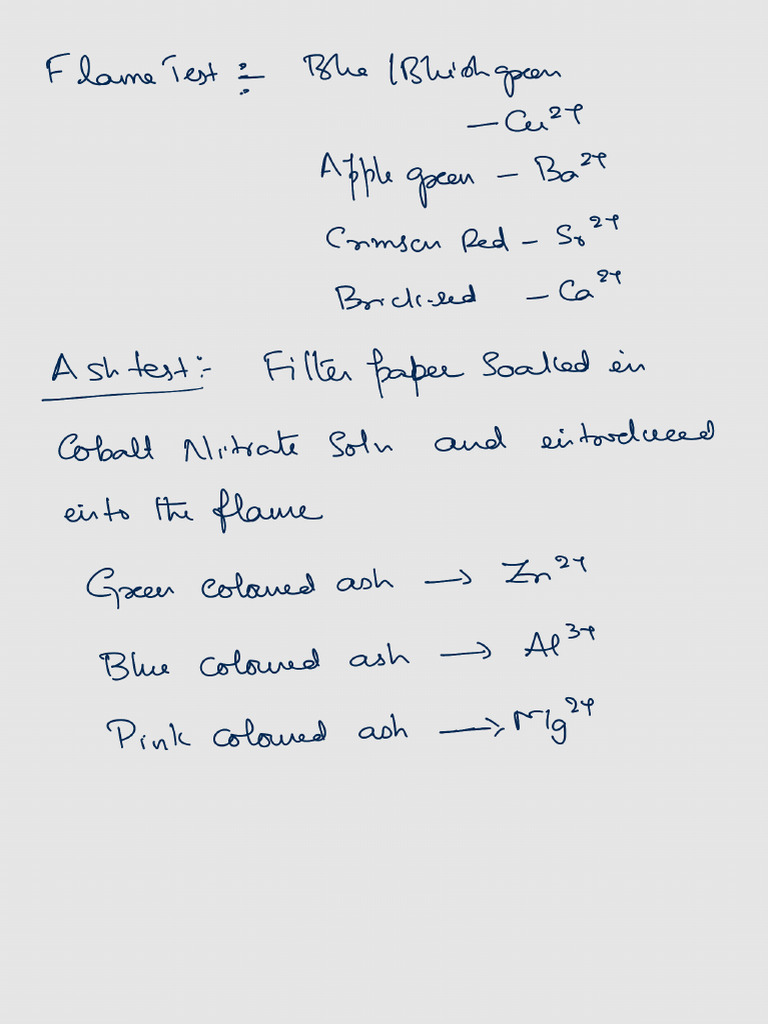 Flame Test :- Blue / Bluish green
— Cu²⁺
Apple green — Ba²⁺
Crimson Red — Sr²⁺
Brick-red — Ca²⁺
Ash test :- Filter paper Soaked in
Cobalt Nitrate Soln and introduced
into the flame
Green coloured ash → Zn²⁺
Blue coloured ash → Al³⁺
Pink coloured ash → Mg²⁺